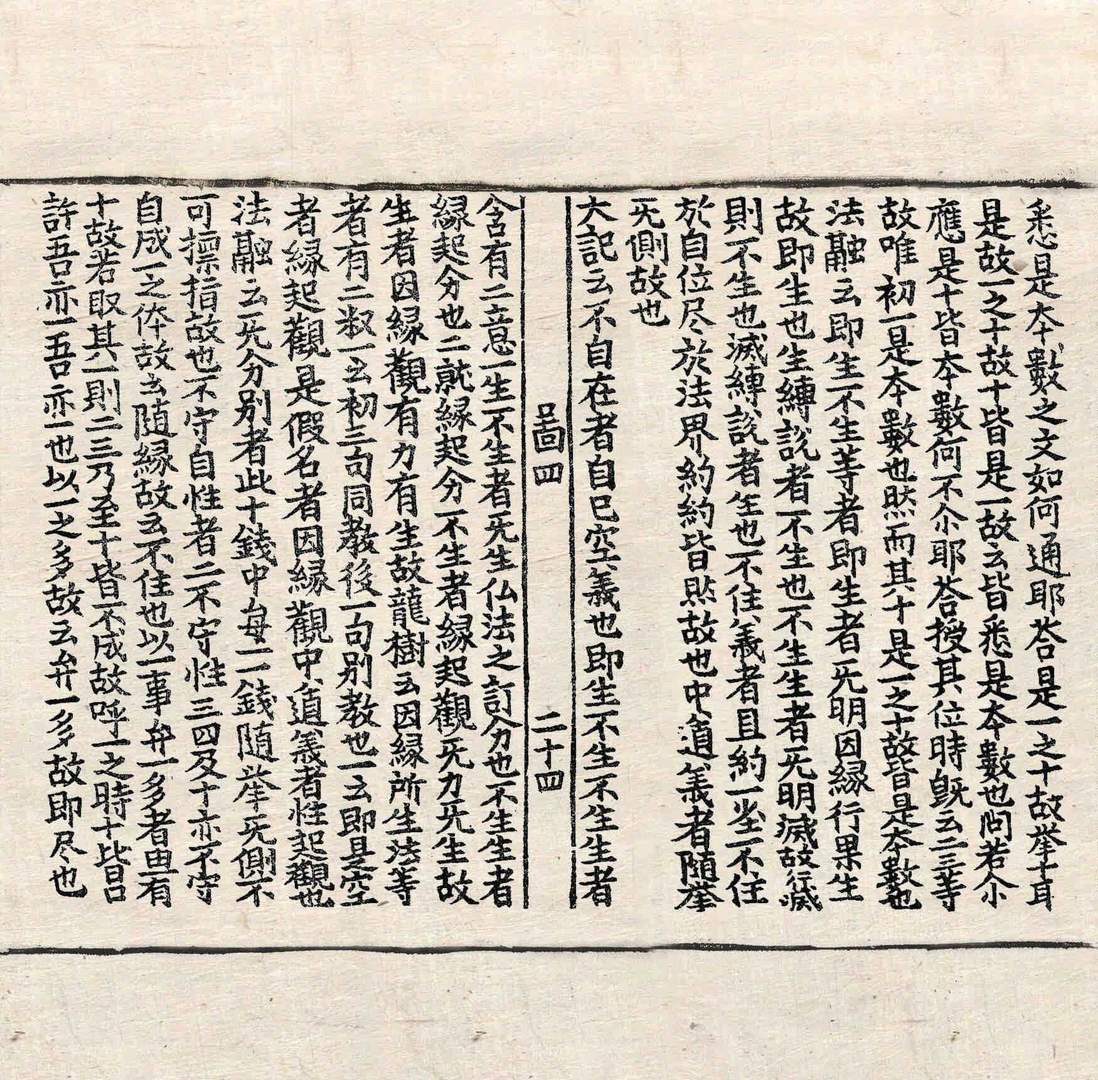 悉是夲數之文如何通耶荅是一之十故挙十耳
是故一之十故十皆是一故云皆悉是夲數也問若尒
應是十皆夲數何不尒耶荅授其位時旣云二三等
故唯初一是夲數也然而其十是一之十故皆是夲數也
法融云即生不生等者即生者旡明因緣行果生
故即生也生縛說者不生也不生生者旡明滅故行滅
則不生也滅縛說者生也不住義者且約一坐不住
於自位尽於法界約約皆然故也中道義者随挙
旡側故也
大記云不自在者自已空義也即生不生不生生者
啚四 二十四
含有二意一生不生者旡生仏法之訂分也不生生者
緣起分也二就緣起分不生者緣起觀旡力旡生故
生者因緣觀有力有生故龍樹云因緣所生法等
者有二釈一云初三句同教後一句别教也一云即是空
者緣起觀是假名者因緣觀中道義者性起觀也
法融云旡分别者此十錢中每一一錢随挙旡側不
可摽指故也不守自性者二不守性三四及十亦不守
自成一之体故云随緣故云不住也以一事弁一多者由有
十故若取其一則二三乃至十皆不成故呼一之時十皆口
許吾亦一吾亦一也以一之多故云弁一多故即尽也